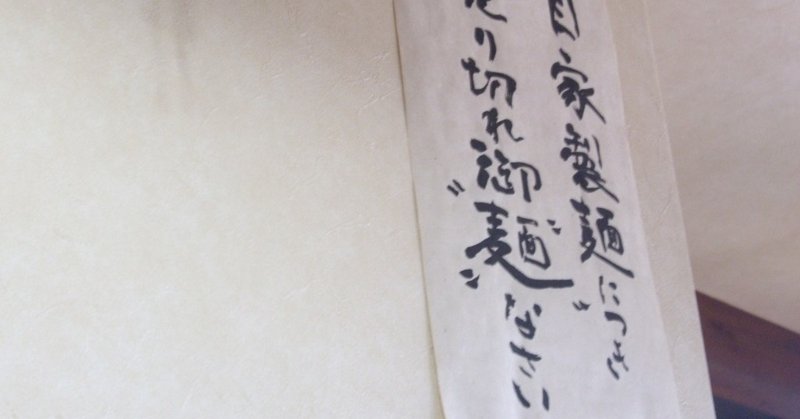 自家製麺につき
売り切れ御麺なさい